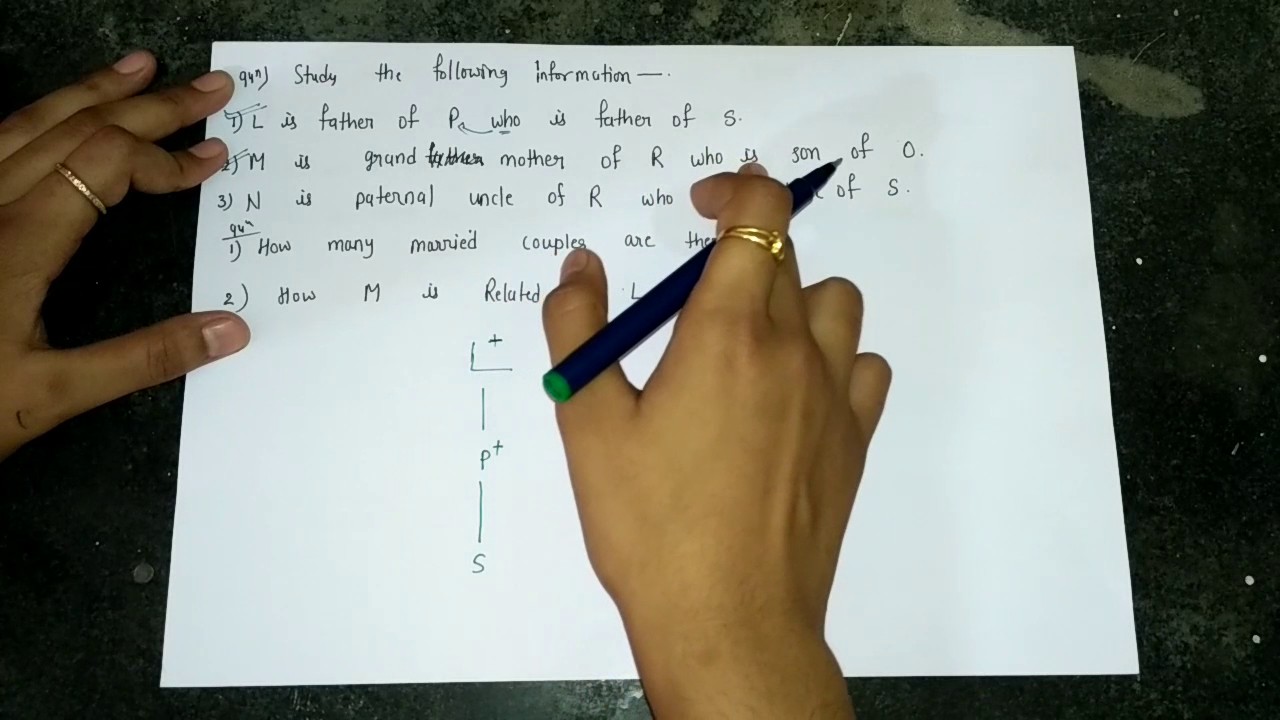 qun) Study the following information —.
1) L is father of P, who is father of S.
2) M is grand mother of R who is son of O.
3) N is paternal uncle of R who of S.
qun
1) How many married couples are
2) How M is Related L
L+
P+
S